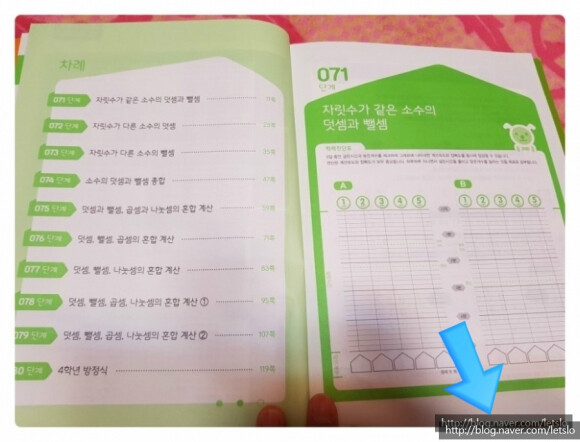 차례
071 단계 자릿수가 같은 소수의 덧셈과 뺄셈 11쪽
072 단계 자릿수가 다른 소수의 덧셈
073 단계 자릿수가 다른 소수의 뺄셈
074 단계 소수의 덧셈과 뺄셈 종합 47쪽
075 단계 덧셈과 뺄셈, 곱셈과 나눗셈의 혼합 계산
076 단계 덧셈, 뺄셈, 곱셈의 혼합 계산 71쪽
077 단계 덧셈, 뺄셈, 나눗셈의 혼합 계산 83쪽
078 단계 덧셈, 뺄셈, 곱셈, 나눗셈의 혼합 계산 ① 95쪽
079 단계 덧셈, 뺄셈, 곱셈, 나눗셈의 혼합 계산 ② 107쪽
80 단계 4학년 방정식 119쪽
071
단계
자릿수가 같은 소수의
덧셈과 뺄셈
A
1 2 3 4 5
B
1 2 3 4 5
http://blog.naver.com/letslo
http://blog.naver.com/letslo